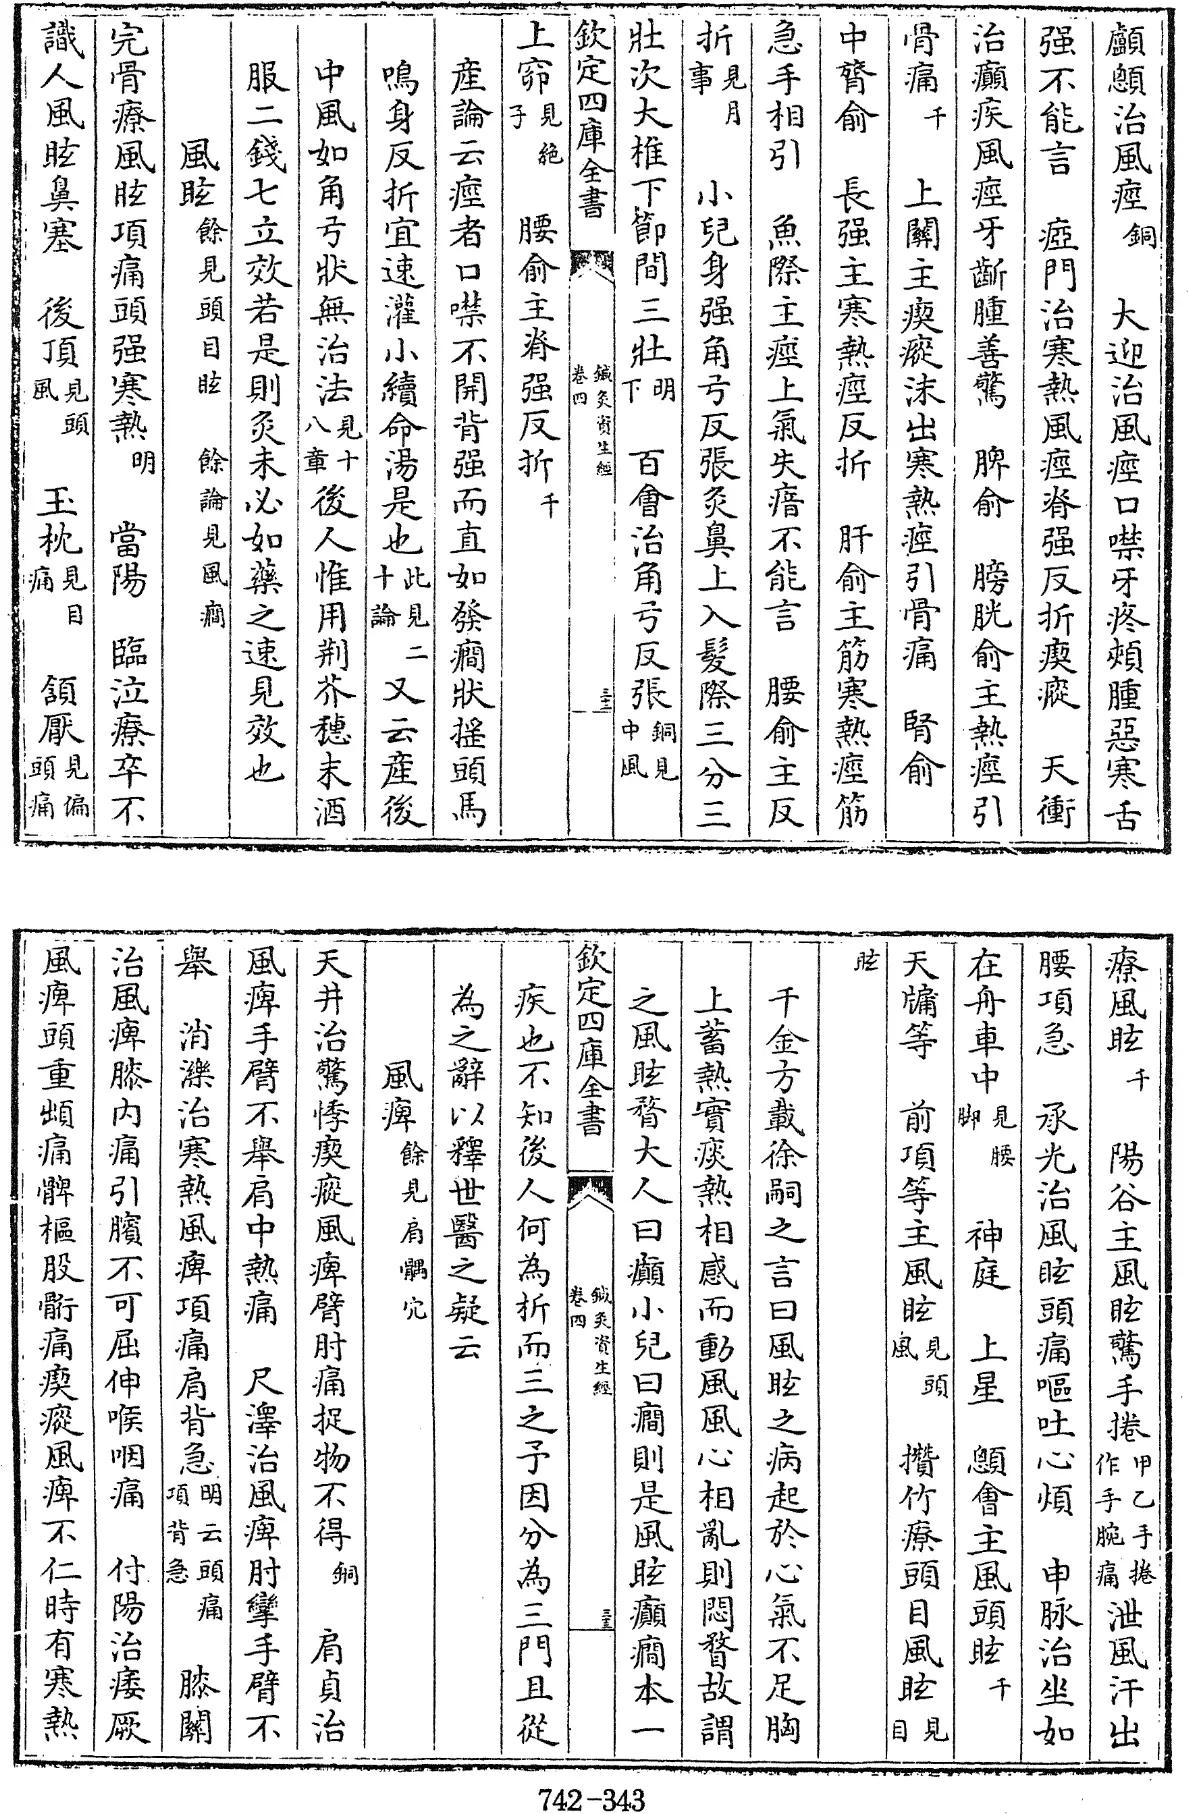 顱顖治風痙銅　大迎治風痙口噤牙疼頰腫惡寒舌
强不能言　瘂門治寒熱風痙脊强反折瘈瘲　天衝
治癲疾風痙牙齗腫善驚　脾俞　膀胱俞主熱痙引
骨痛千　上關主瘈瘲沫出寒熱痙引骨痛　腎俞
中膂俞　長强主寒熱痙反折　肝俞主筋寒熱痙筋
急手相引　魚際主痙上氣失瘖不能言　腰俞主反
折見月事　小兒身强角弓反張灸鼻上入髮際三分三
壯次大椎下節間三壯明下　百會治角弓反張銅見中風
欽定四庫全書　鍼灸資生經卷四　三十二
上窌見絶子　腰俞主脊强反折千
産論云痙者口噤不開背强而直如發癎狀搖頭馬
鳴身反折宜速灌小續命湯是也此見二十論又云産後
中風如角弓狀無治法見十八章後人惟用荆芥穗末酒
服二錢七立效若是則灸未必如藥之速見效也
風眩餘見頭目眩　餘論見風癎
完骨療風眩項痛頭强寒熱明　當陽　臨泣療卒不
識人風眩鼻塞　後頂見頭風　玉枕見目痛　頷厭見偏頭痛
療風眩千　陽谷主風眩驚手捲甲乙手捲作手腕痛泄風汗出
腰項急　承光治風眩頭痛嘔吐心煩　申脉治坐如
在舟車中見腰脚　神庭　上星　顖會主風頭眩千
天牖等　前項等主風眩見頭風　攢竹療頭目風眩見目
眩
千金方載徐嗣之言曰風眩之病起於心氣不足胸
上蓄熱實痰熱相感而動風風心相亂則悶瞀故謂
之風眩瞀大人曰癲小兒曰癎則是風眩癲癎本一
欽定四庫全書　鍼灸資生經卷四　三十三
疾也不知後人何為析而三之予因分為三門且從
為之辭以釋世醫之疑云
風痺餘見肩髃穴
天井治驚悸瘈瘲風痺臂肘痛捉物不得銅　肩貞治
風痺手臂不舉肩中熱痛　尺澤治風痺肘攣手臂不
舉　消濼治寒熱風痺項痛肩背急明云頭痛項背急　膝關
治風痺膝内痛引臏不可屈伸喉咽痛　付陽治痿厥
風痺頭重䪼痛髀樞股䯒痛瘈瘲風痺不仁時有寒熱
742-343